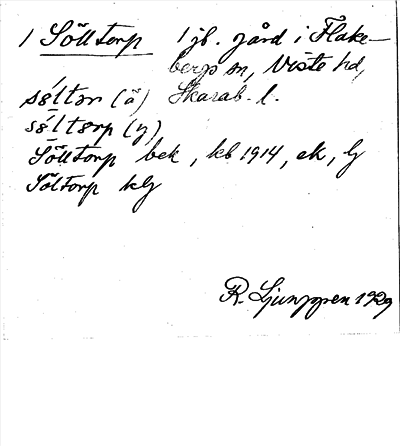 1 Sölltorp 1 jb. gård i Flake-
bergs sn, Viste hd,
Skarab. l.
sö́ltɔr (ä)
sö́ltɔrp (y)
Sölltorp bek, kb 1914, ek, lj
Söltorp klj
R. Ljunggren 1929